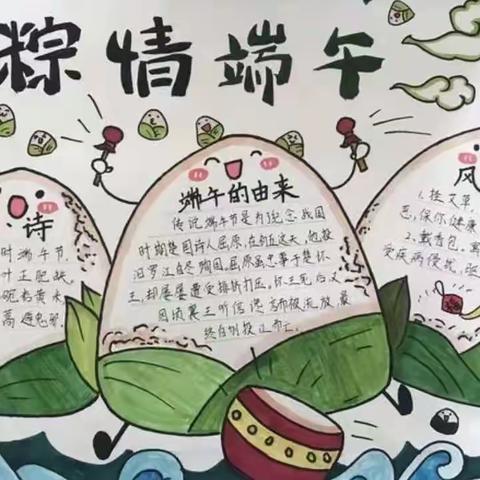 粽情端午
诗
时端午节,
叶正肥
黄
高避
端午的由来
传说端午节是为纪念战国
时期楚国诗人屈原,在这天,他投
汨罗江自尽殉国,屈原虽忠事于楚怀
王,却屡屡遭受排挤打压,怀王死后又
因顷襄王听信谗而被流放,最
终自投江而亡。
风
1.挂艾草,
恶,保你健康
2.戴香包,寓
受疾病侵扰,